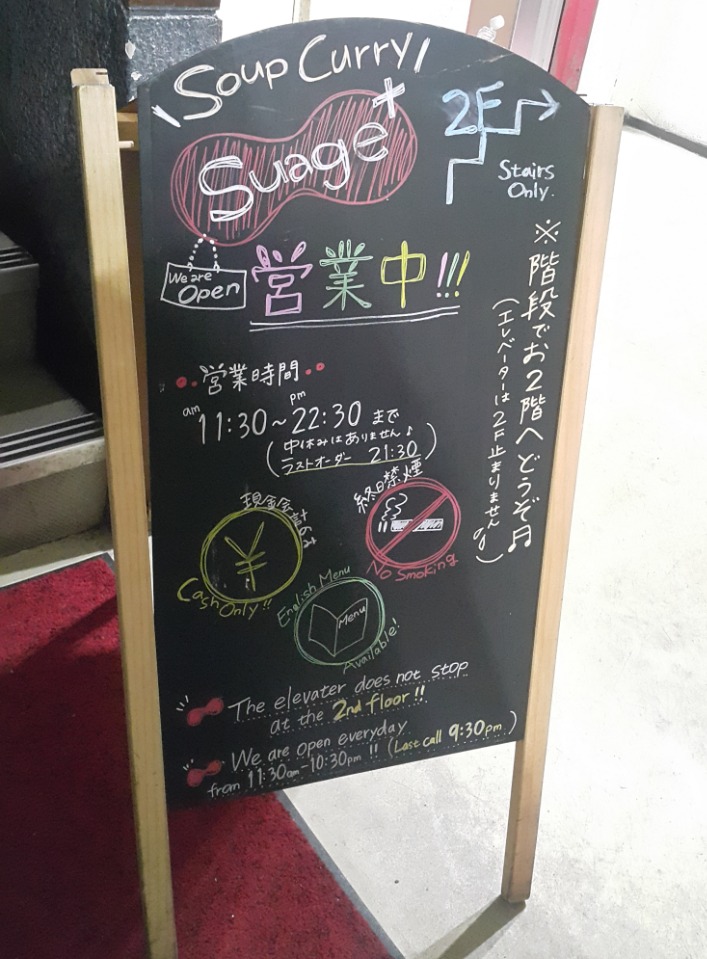 \Soup Curry/
Suage+
2F
Stairs
Only.
We are
Open
営業中!!!
※階段でお2階へどうぞ♬
(エレベーターは2F止まりません)
営業時間
am 11:30~pm 22:30 まで
(中休みはありません♪
ラストオーダー 21:30)
現金会計のみ
Cash Only!!
終日禁煙
No Smoking
English Menu
Menu
Available!
The elevater does not stop
at the 2nd floor!!
We are open everyday
from 11:30am-10:30pm !! (Last call 9:30pm.)